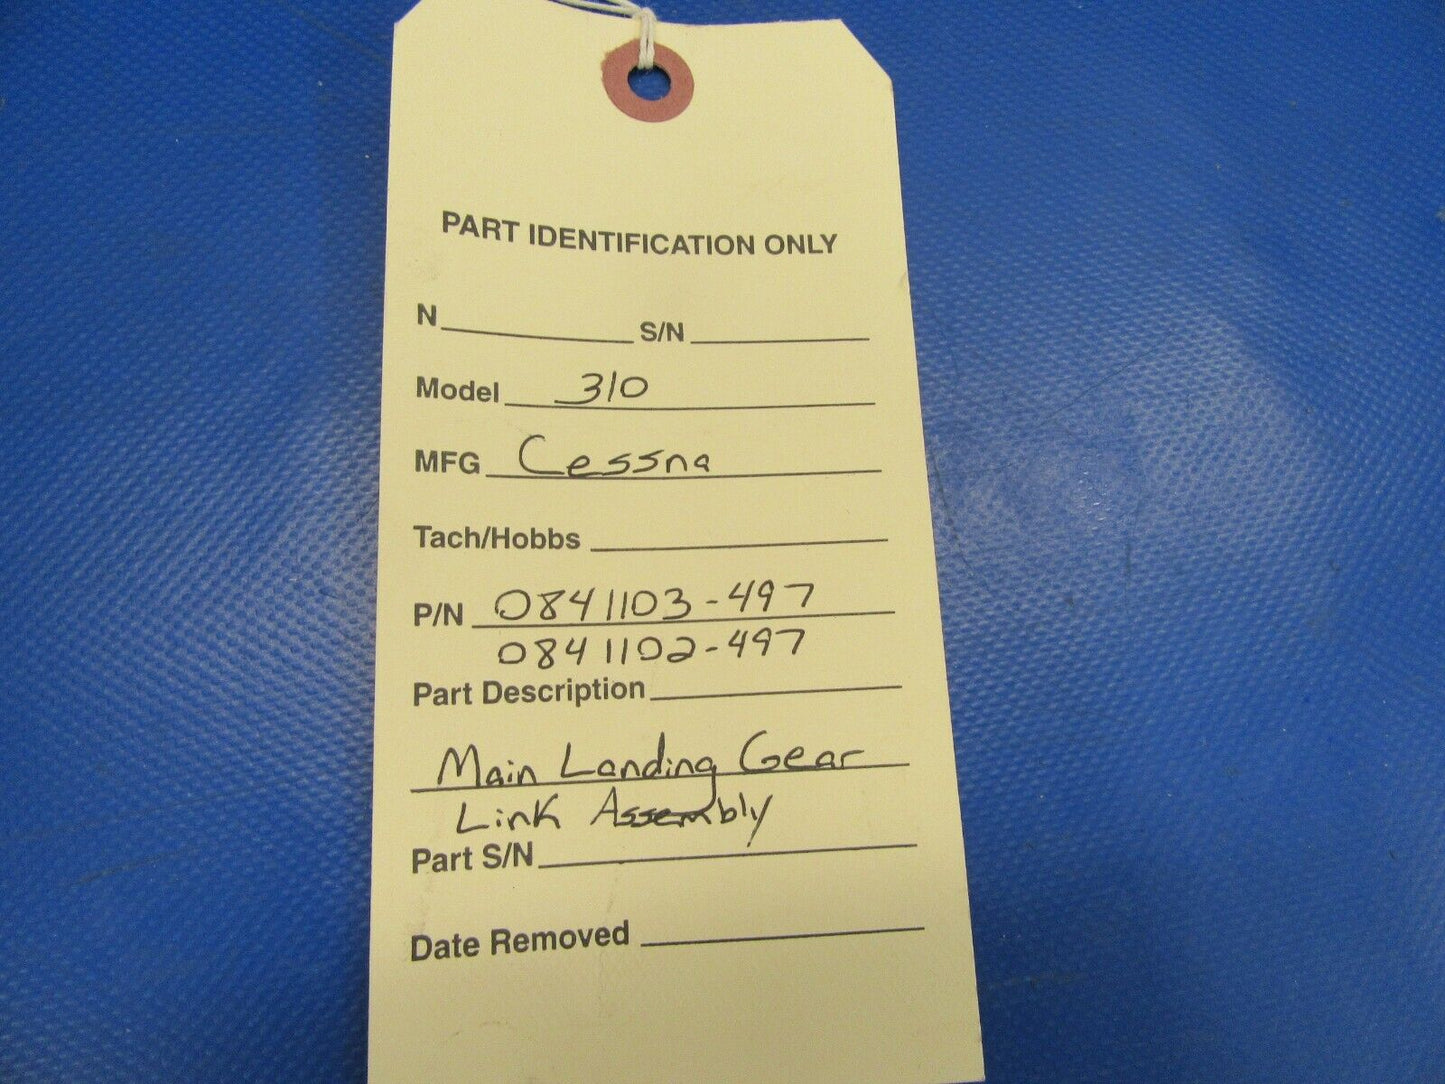 PART IDENTIFICATION ONLY
N S/N
Model 310
MFG Cessna
Tach/Hobbs
P/N 0841103-497
0841102-497
Part Description
Main Landing Gear
Link Assembly
Part S/N
Date Removed